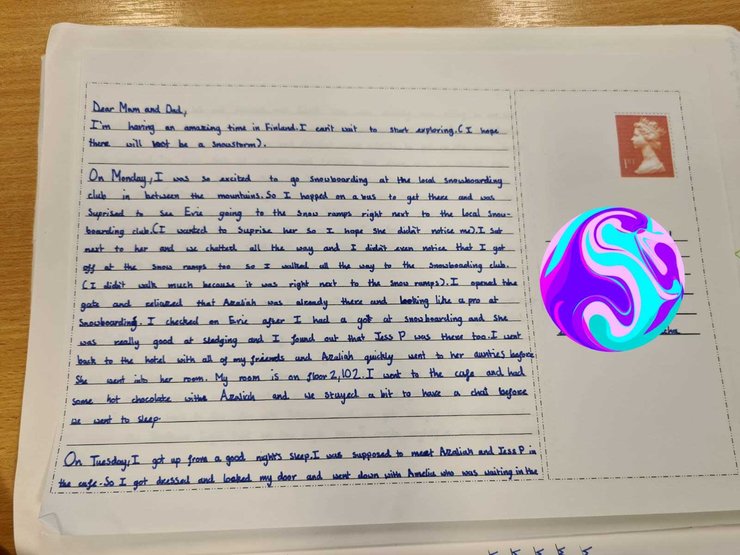 Dear Mam and Dad,
I'm having an amazing time in Finland. I can't wait to start exploring. (I hope
there will not be a snowstorm).
On Monday, I was so excited to go snowboarding at the local snowboarding
club in between the mountains. So I hopped on a bus to get there and was
Suprised to see Evie going to the snow ramps right next to the local snow-
boarding club. (I wanted to Suprise her so I hope she didn't notice me). I sat
next to her and we chatted all the way and I didn't even notice that I got
off at the snow ramps too so I walked all the way to the snowboarding club.
(I didn't walk much because it was right next to the snow ramps). I opened the
gate and and reliazed that Azaliah was already there and looking like a pro at
Snowboarding. I checked on Evie after I had a got at snowboarding and she
was really good at sledging and I found out that Jess P was there too. I went
back to the hotel with all of my friends and Azaliah quickly went to her aunties before
She went into her room. My room is on floor 2,102. I went to the cafe and had
some hot chocolate withe Azaliah and we stayed a bit to have a chat before
we went to sleep.
On Tuesday, I got up from a good night's sleep. I was supposed to meet Azaliah and Jess P in
the cafe. So I got dressed and locked my door and went down with Amelia who was waiting in the
1ST